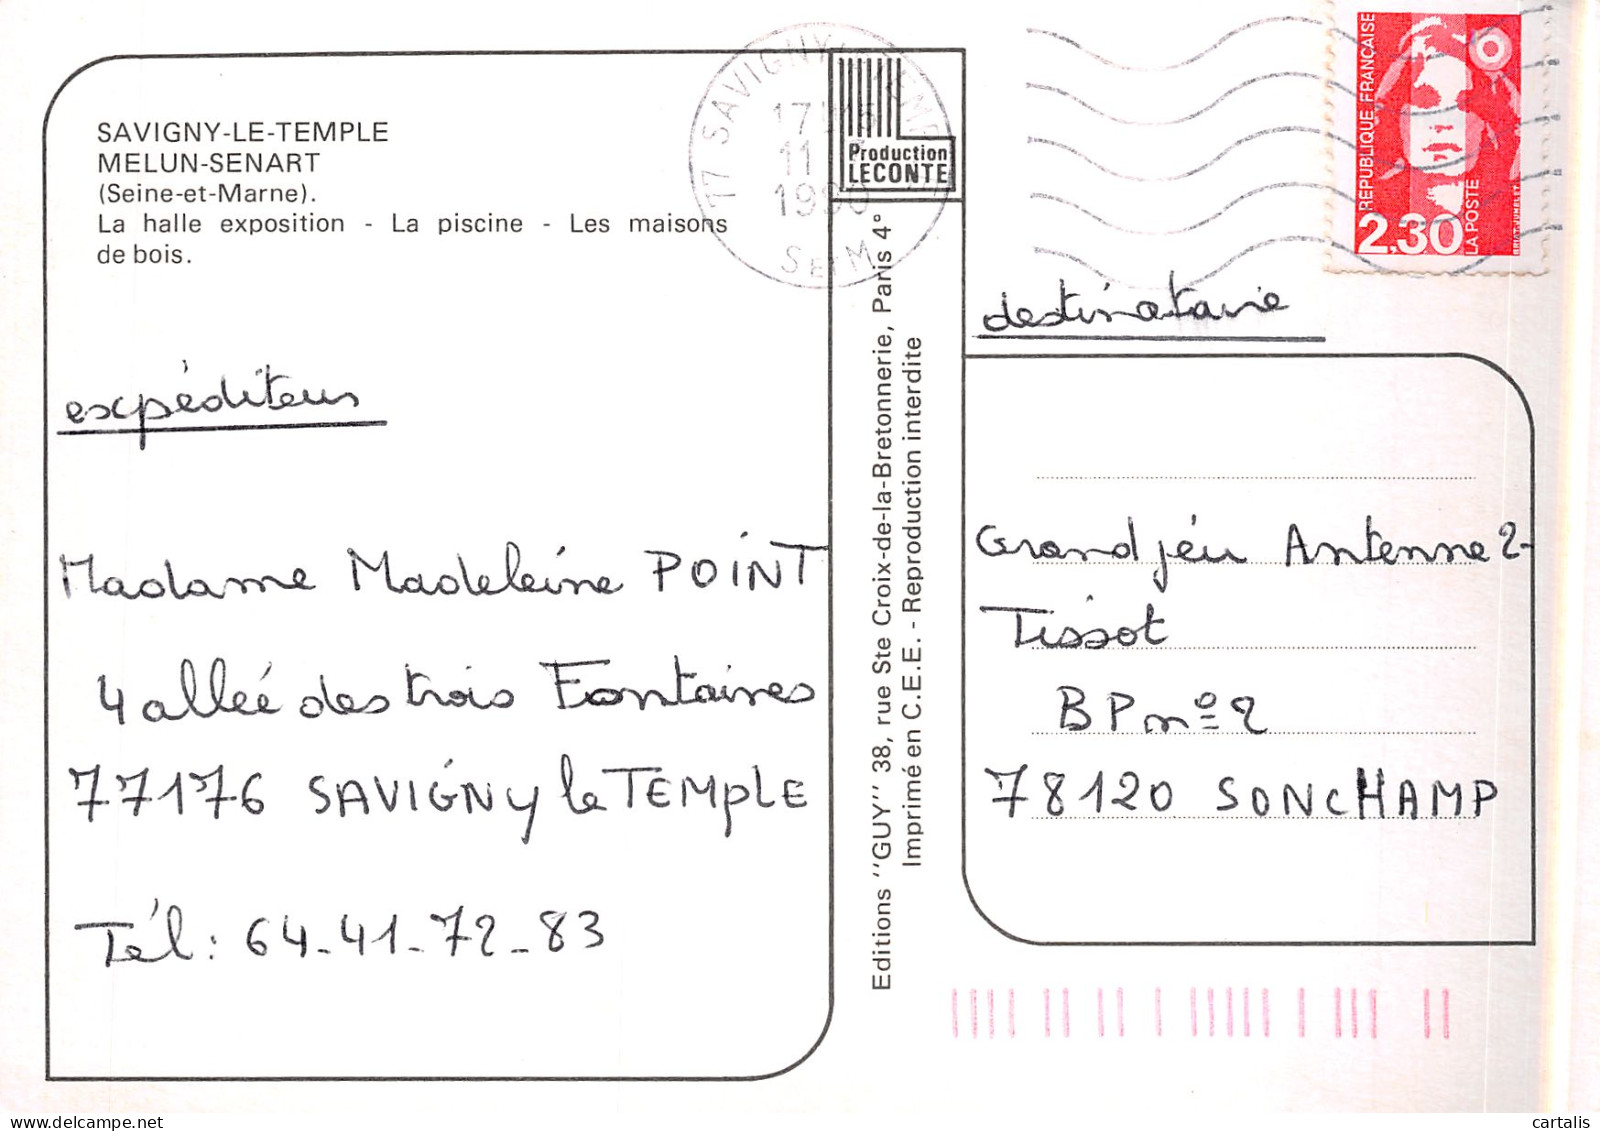 SAVIGNY-LE-TEMPLE
MELUN-SENART
(Seine-et-Marne).
La halle exposition - La piscine - Les maisons
de bois.
expéditeur
Madame Madeleine POINT
4 allée des trois Fontaines
77176 SAVIGNY le TEMPLE
Tél : 64-41-72-83
77 SAVIGNY
11
1990
SEM
Production
LECONTE
Editions "GUY" 38, rue Ste Croix-de-la-Bretonnerie, Paris 4°
Imprimé en C.E.E. - Reproduction interdite
REPUBLIQUE FRANÇAISE
2,30
LA POSTE
destinataire
Grand jeu Antenne 2-
Tissot
BP n° 2
78120 SONCHAMP
cartalis